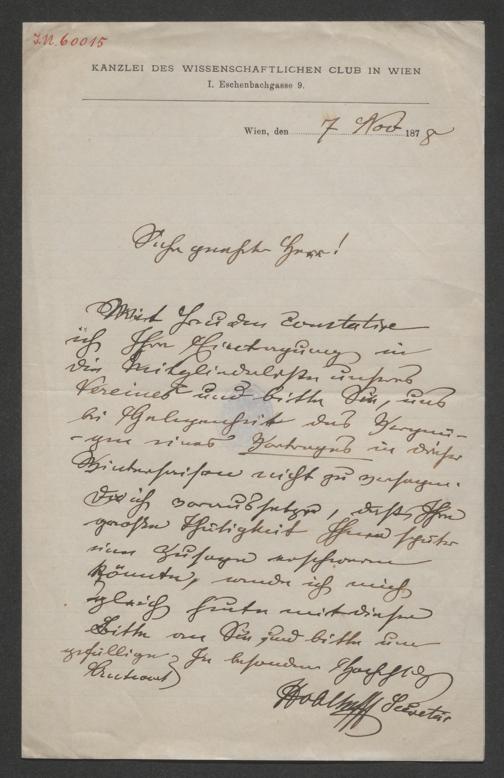 J.N. 60015
KANZLEI DES WISSENSCHAFTLICHEN CLUB IN WIEN
I. Eschenbachgasse 9.
Wien, den 7 Nov 1878
Sehr geehrter Herr!
Mit Freuden constatire
ich Ihre Eintragung in
die Mitgliederliste unseres
Vereines und bitte Sie, uns
bei Gelegenheit das Vergnü-
-gen eines Vortrages in dieser
Wintersaison nicht zu versagen.
Da ich voraussetze, daß Ihre
große Thätigkeit Ihnen später
eine Zusage erschweren
könnte, wende ich mich
gleich heute mit dieser
Bitte an Sie und bitte um
gefällige Antwort. In besonderer Hochachtg
Secretär